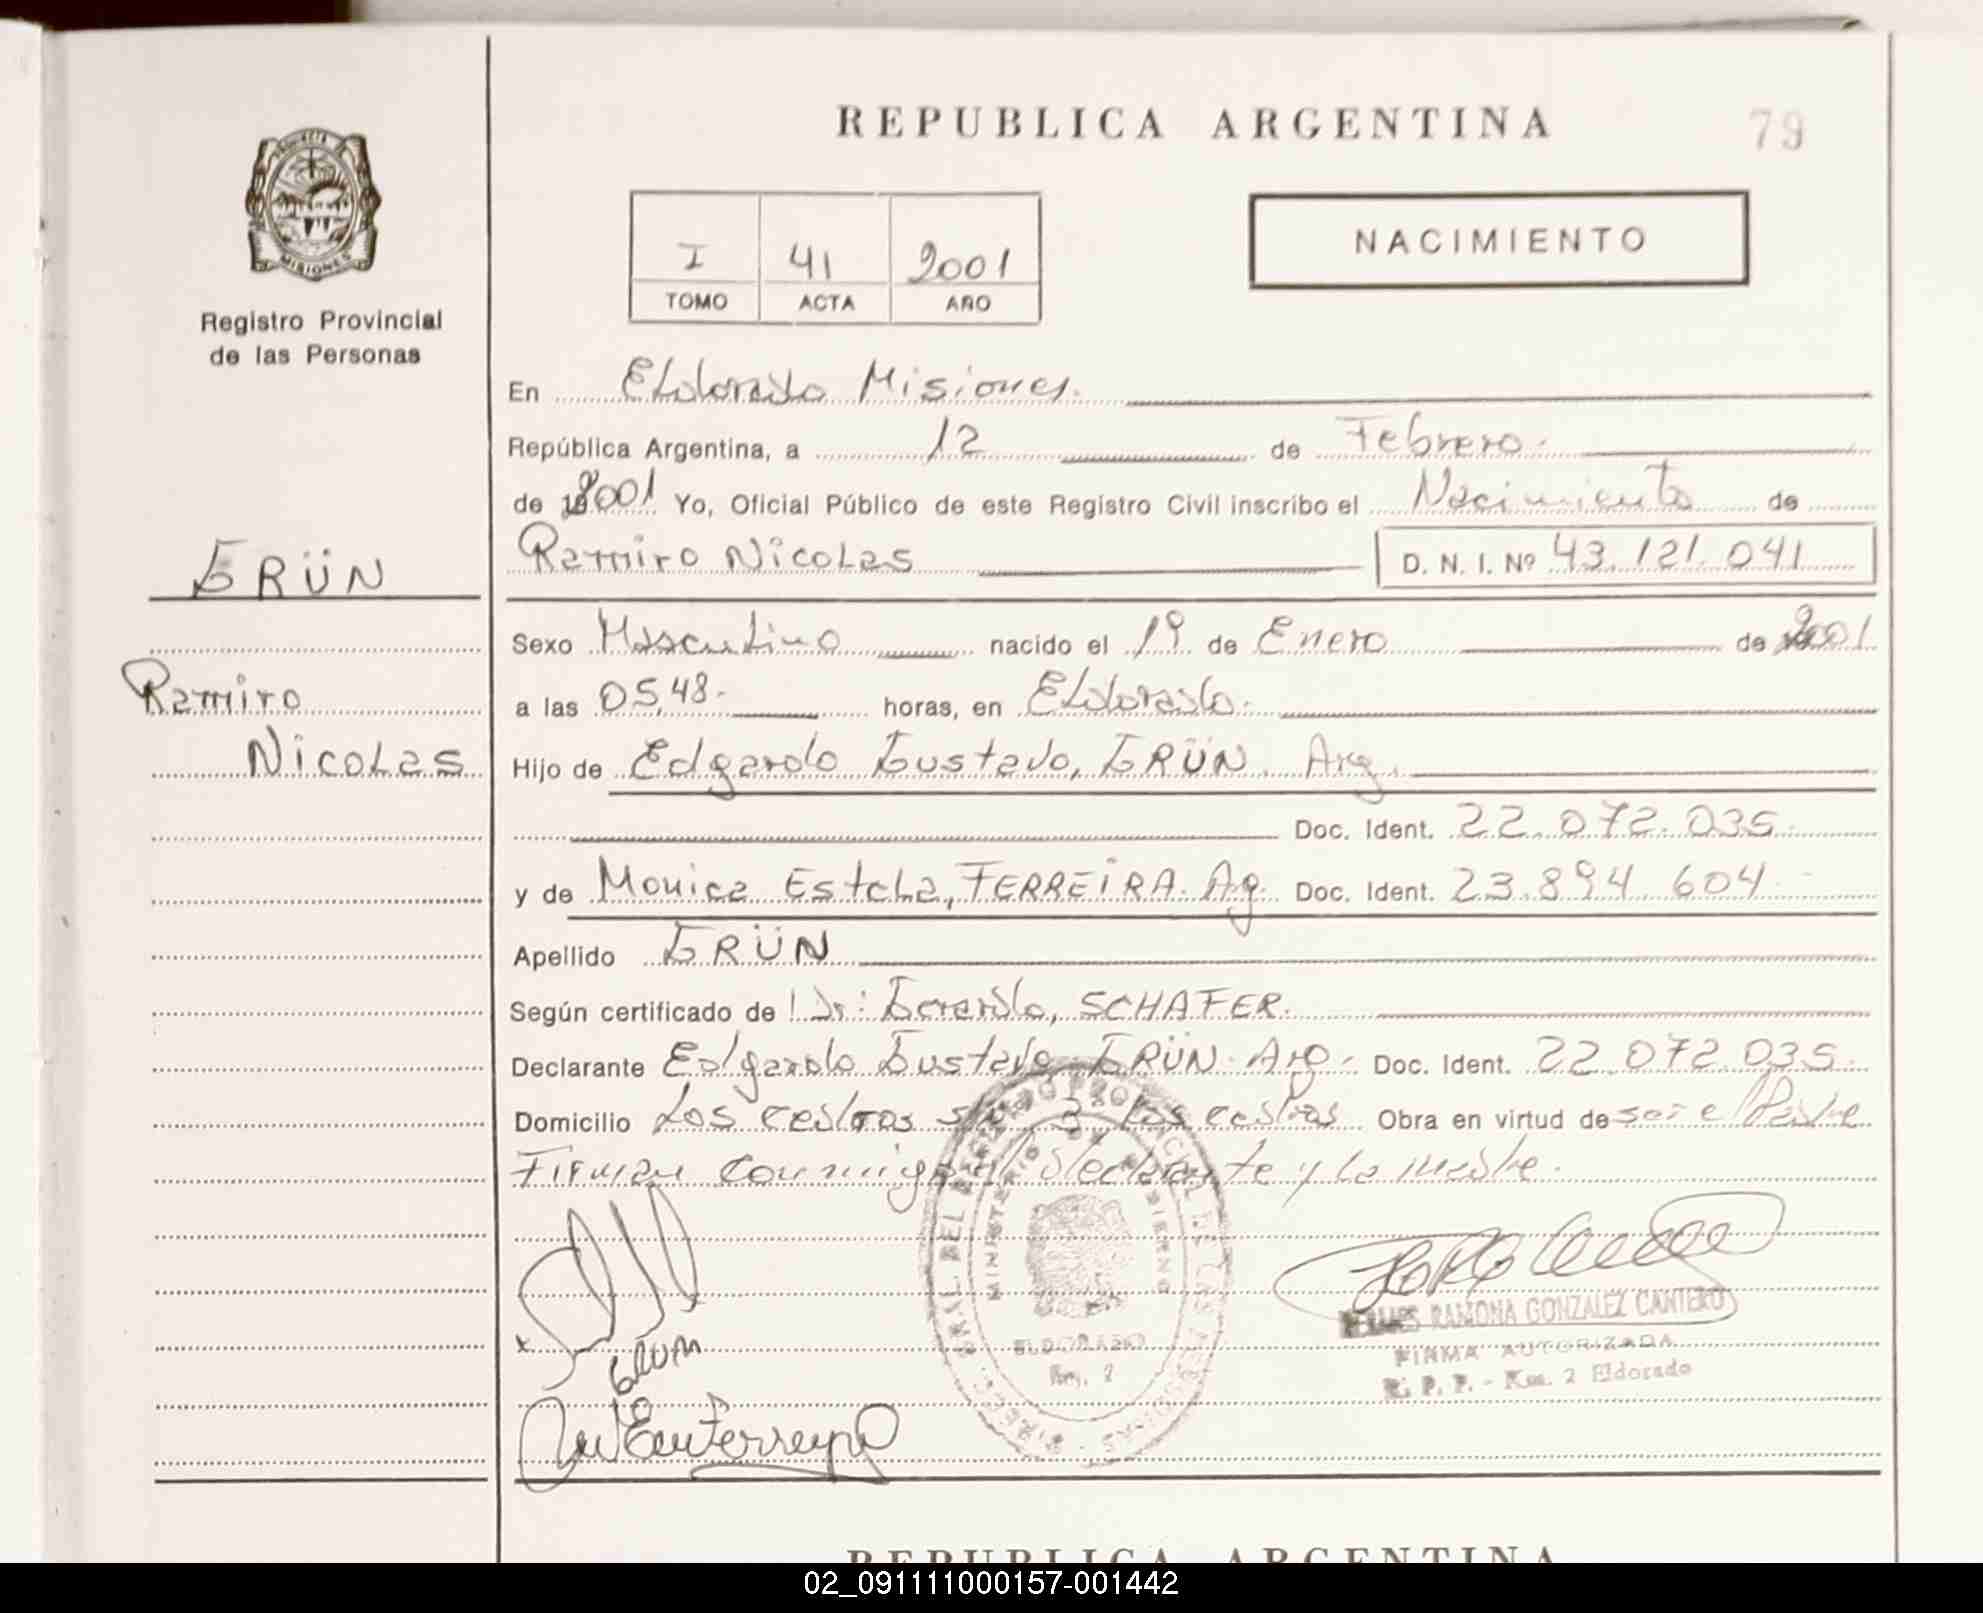 REPUBLICA ARGENTINA
79
I 41 2001
TOMO ACTA AÑO
NACIMIENTO
MISIONES
Registro Provincial
de las Personas
En Eldorado Misiones.
República Argentina, a 12 de Febrero.
de 2001 Yo, Oficial Público de este Registro Civil inscribo el Nacimiento de
GRÜN
Ramiro Nicolas D. N. I. Nº 43.121.041
Sexo Masculino nacido el 1º de Enero de 2001
Ramiro
a las 05,48. horas, en Eldorado.
Nicolas
Hijo de Edgardo Gustavo, GRÜN. Arg.
Doc. Ident. 22.072.035
y de Monica Estela, FERREIRA. Arg. Doc. Ident. 23.894.604.
Apellido GRÜN
Según certificado de Dr: Gerardo, SCHAFER.
Declarante Edgardo Gustavo GRÜN. Arg. Doc. Ident. 22.072.035.
Domicilio Los cedros 3 Los cedros Obra en virtud de ser el Padre
Firman conmigo el declarante y la madre.
GRUN
MINISTERIO DE BIENESTAR
ELDORADO
Km. 2
RAMONA GONZALEZ CANTERO
FIRMA AUTORIZADA
R. P. P. - Km. 2 Eldorado
REPUBLICA ARGENTINA
02_091111000157-001442